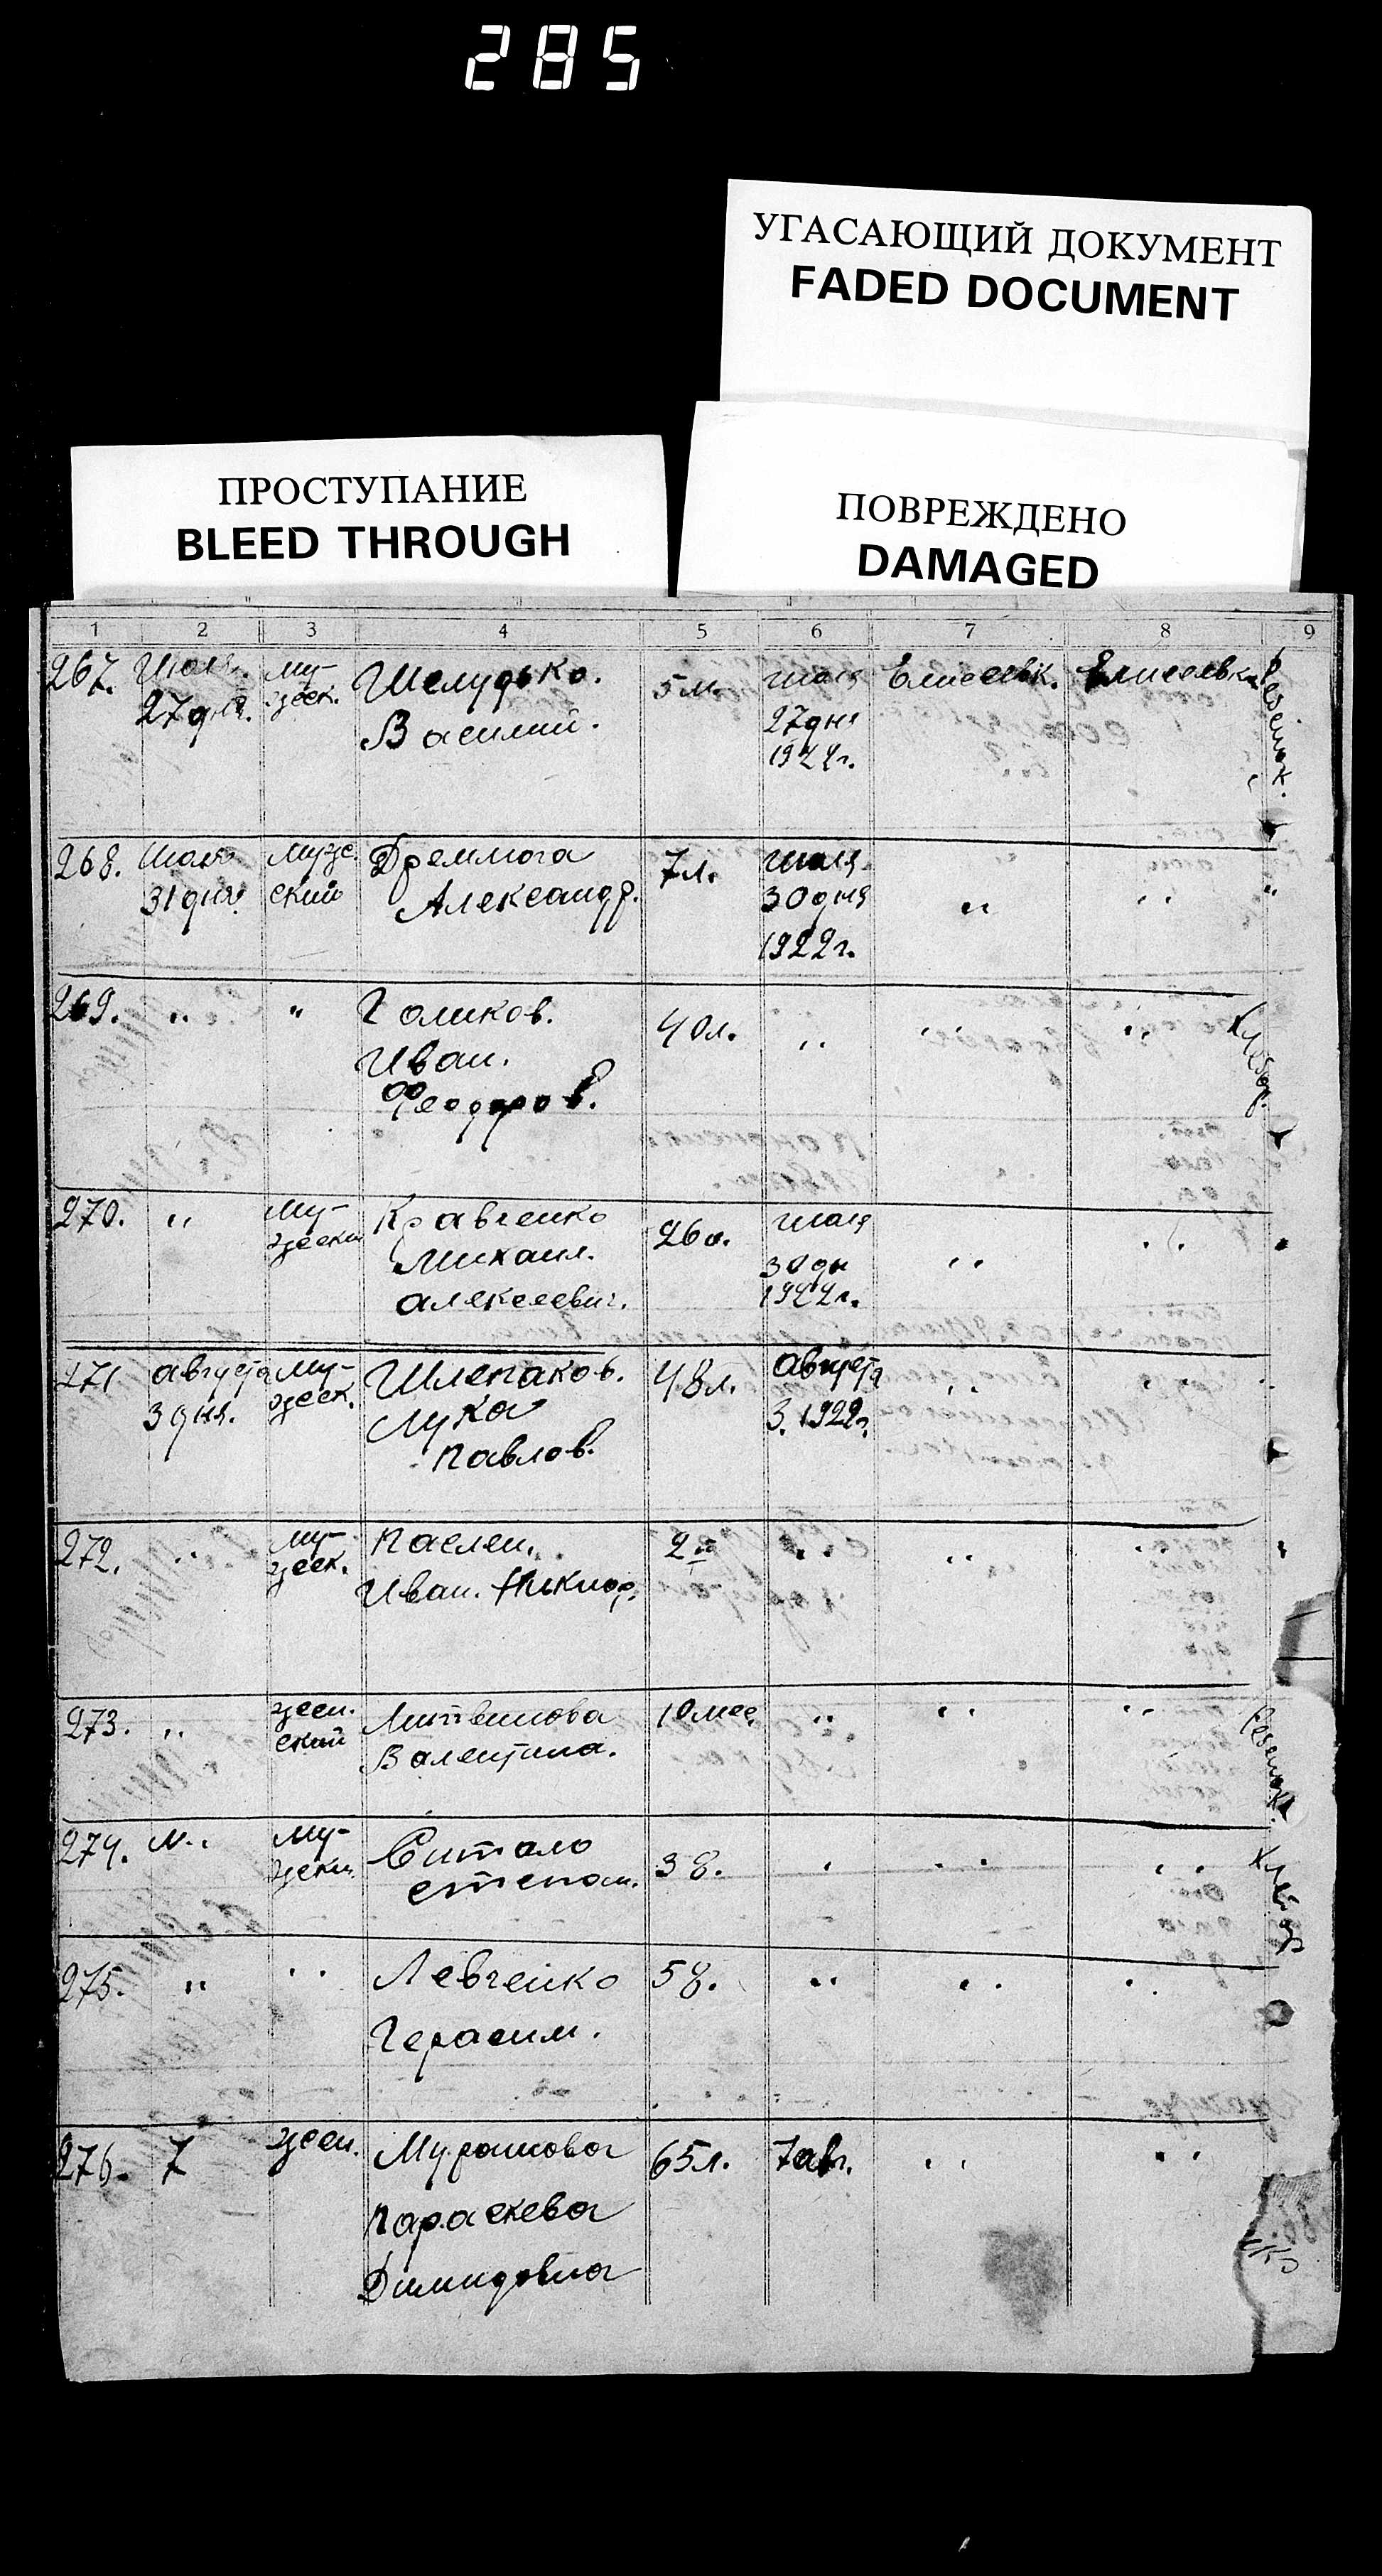 285
УГАСАЮЩИЙ ДОКУМЕНТ
FADED DOCUMENT
ПРОСТУПАНИЕ
BLEED THROUGH
ПОВРЕЖДЕНО
DAMAGED
1 2 3 4 5 6 7 8 9
267. Июля му- Шелудько. 5 м. июля Елисеевк. Елисеевка
27 дня. жеск. Василий. 27 дня
192 г.
268. Июля мужс. Дреммога 7 л. июля „ „ „
31 дня. ский Александр. 30 дня
1922 г.
269. „ „ Голиков. 40 л. „ „ „ Хлебор.
Иван.
Феодоров.
270. „ му- Кравченко 26 л. июля „ „ „
жески Михаил. 30 дн
Алексеевич. 1922 г.
271 августа му- Шлепаков. 48 л. августа „ „ „
3 дня. жеск. Лука 3. 1922 г.
Павлов.
272. „ му- 2 „ „ „ „
жеск. Иван. Никиф.
273. „ жен. Литвинова 10 мес. „ „ „
ский Валентина.
274. „ му- Ситало 38. „ „ „ Хлебор
жеки. Степан.
275. „ „ Левченко 58. „ „ „
Герасим.
276. 7 жен. Мурашова 65 л. 7 авг. „ „
Параскева
Димидовна